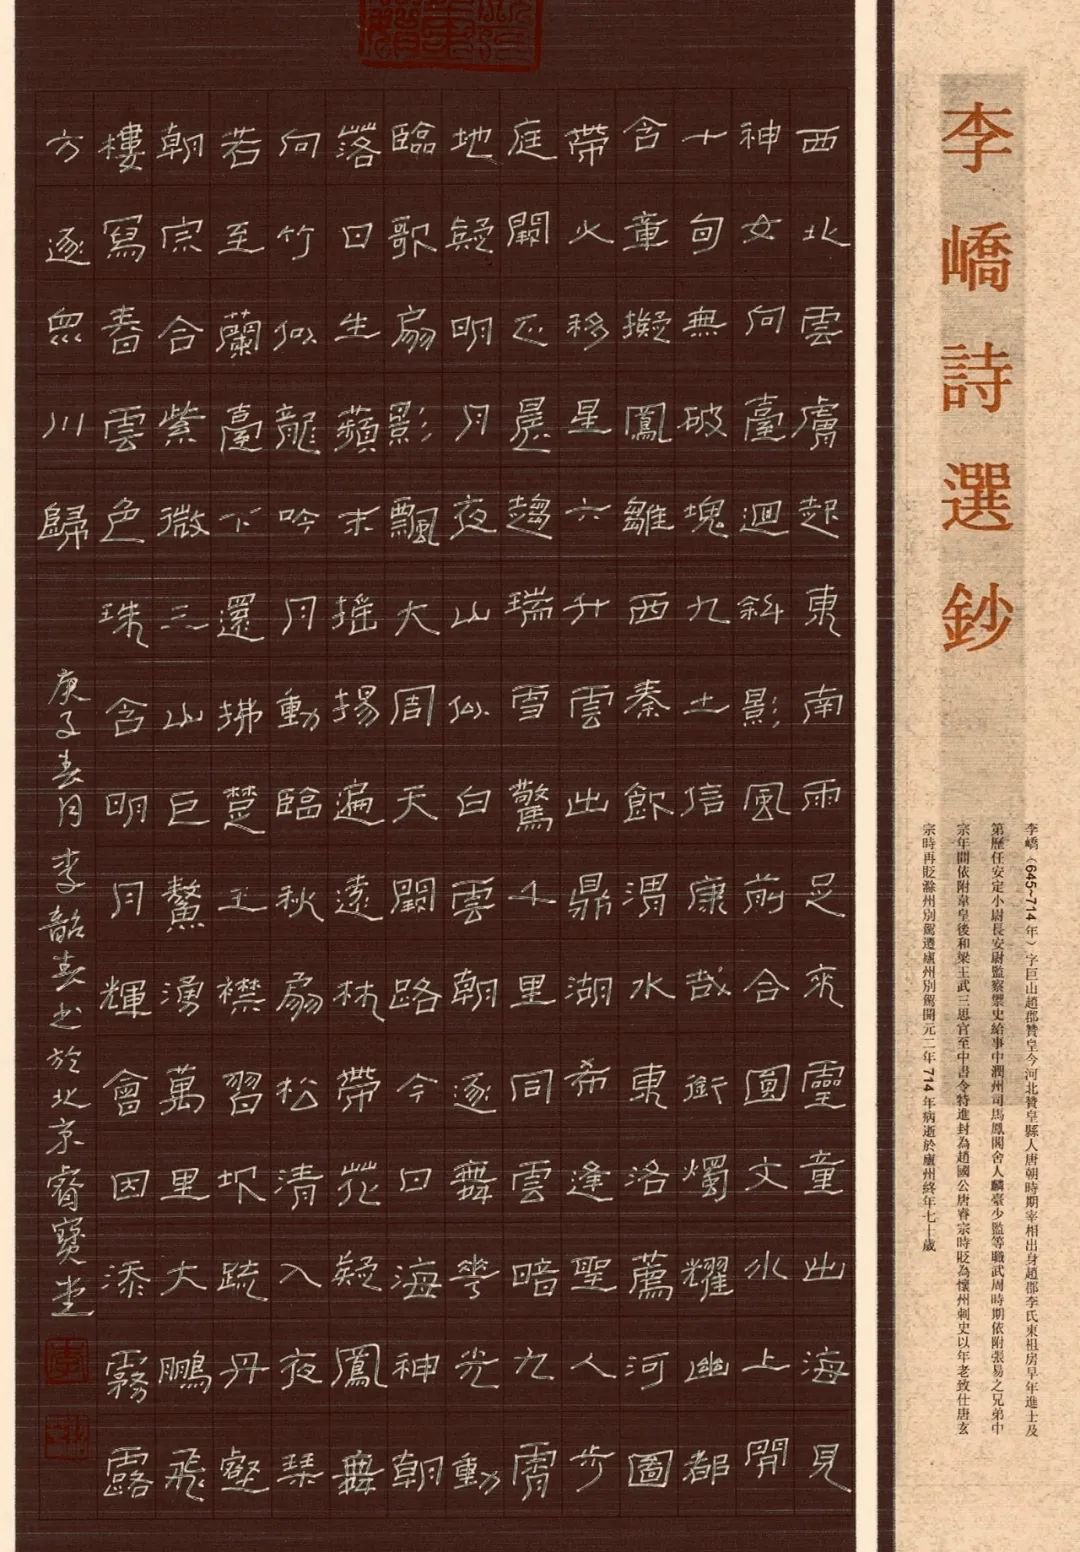 李嶠詩選鈔
李嶠（645~714年）字巨山趙郡贊皇今河北贊皇縣人唐朝時期宰相出身趙郡李氏東祖房早年進士及
第歷任安定小尉長安尉監察禦史給事中潤州司馬鳳閣舍人麟臺少監等職武周時期依附張易之兄弟中
宗年間依附韋皇後和梁王武三思官至中書令特進封為趙國公唐睿宗時貶為懷州刺史以年老致仕唐玄
宗時再貶滁州別駕遷廬州別駕開元二年714年病逝於廬州終年七十歲
西北雲膚起東南雨足來靈童出海見
神女向臺迴斜影風前合圓文水上開
十旬無破塊九土信康哉銜燭耀幽都
含章擬鳳雛西秦飲渭水東洛薦河圖
帶火移星六升雲出鼎湖希逢聖人步
庭闕正晨趨瑞雪驚千里同雲暗九霄
地疑明月夜山似白雲朝逐舞花光動
臨歌扇影飄大周天闕路今日海神朝
落日生蘋末搖揚遍遠林帶花疑鳳舞
向竹似龍吟月動臨秋扇松清入夜琴
若至蘭臺下還拂楚王襟習坎疏丹壑
朝宗合紫微三山巨鰲湧萬里大鵬飛
樓寫春雲色珠含明月輝會因添霧露
方逐眾川歸
庚子春月李韶春书於北京睿寶堂